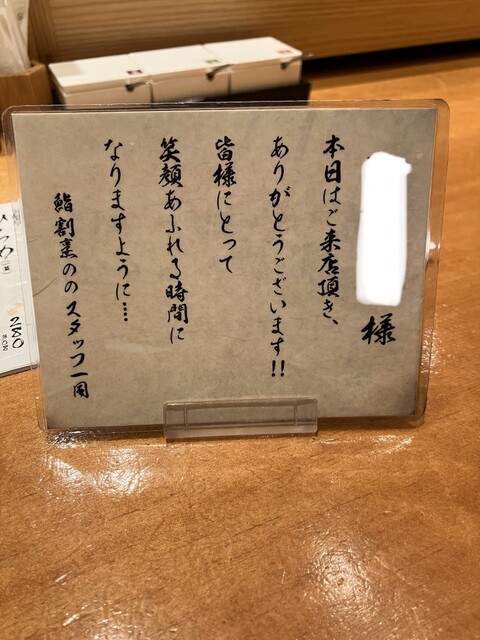 様
本日はご来店頂き、
ありがとうございます!!
皆様にとって
笑顔あふれる時間に
なりますように….
鮨割烹のの スタッフ一同
280